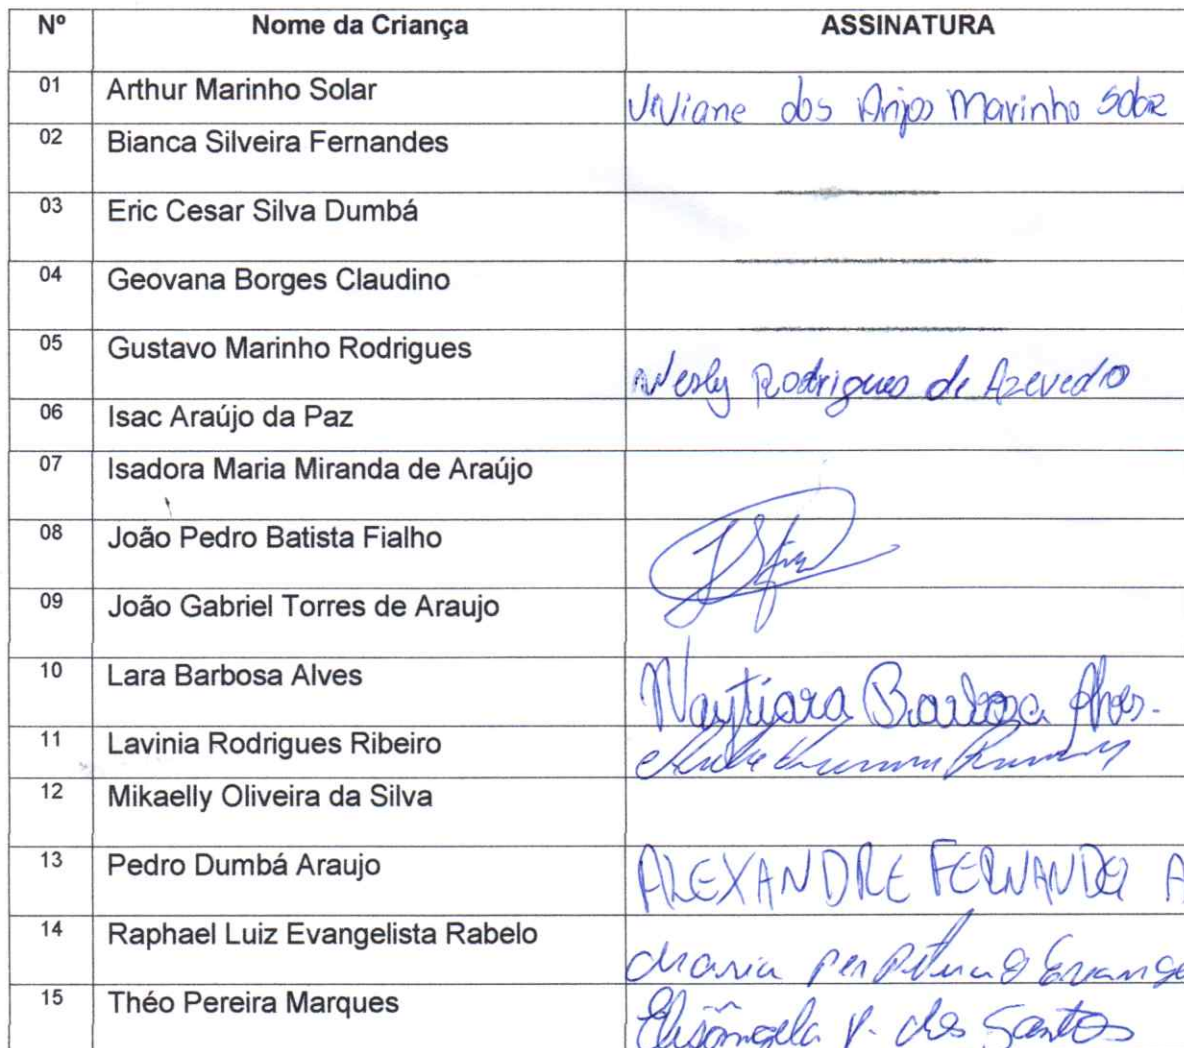 Nº Nome da Criança ASSINATURA
01 Arthur Marinho Solar Viviane dos Anjos Marinho Solar
02 Bianca Silveira Fernandes
03 Eric Cesar Silva Dumbá
04 Geovana Borges Claudino
05 Gustavo Marinho Rodrigues Wesly Rodrigues de Azevedo
06 Isac Araújo da Paz
07 Isadora Maria Miranda de Araújo
08 João Pedro Batista Fialho
09 João Gabriel Torres de Araujo
10 Lara Barbosa Alves Naytiara Barbosa Alves.
11 Lavinia Rodrigues Ribeiro
12 Mikaelly Oliveira da Silva
13 Pedro Dumbá Araujo ALEXANDRE FERNANDES A
14 Raphael Luiz Evangelista Rabelo Maria perpétua Evange
15 Théo Pereira Marques Elisângela P. dos Santos